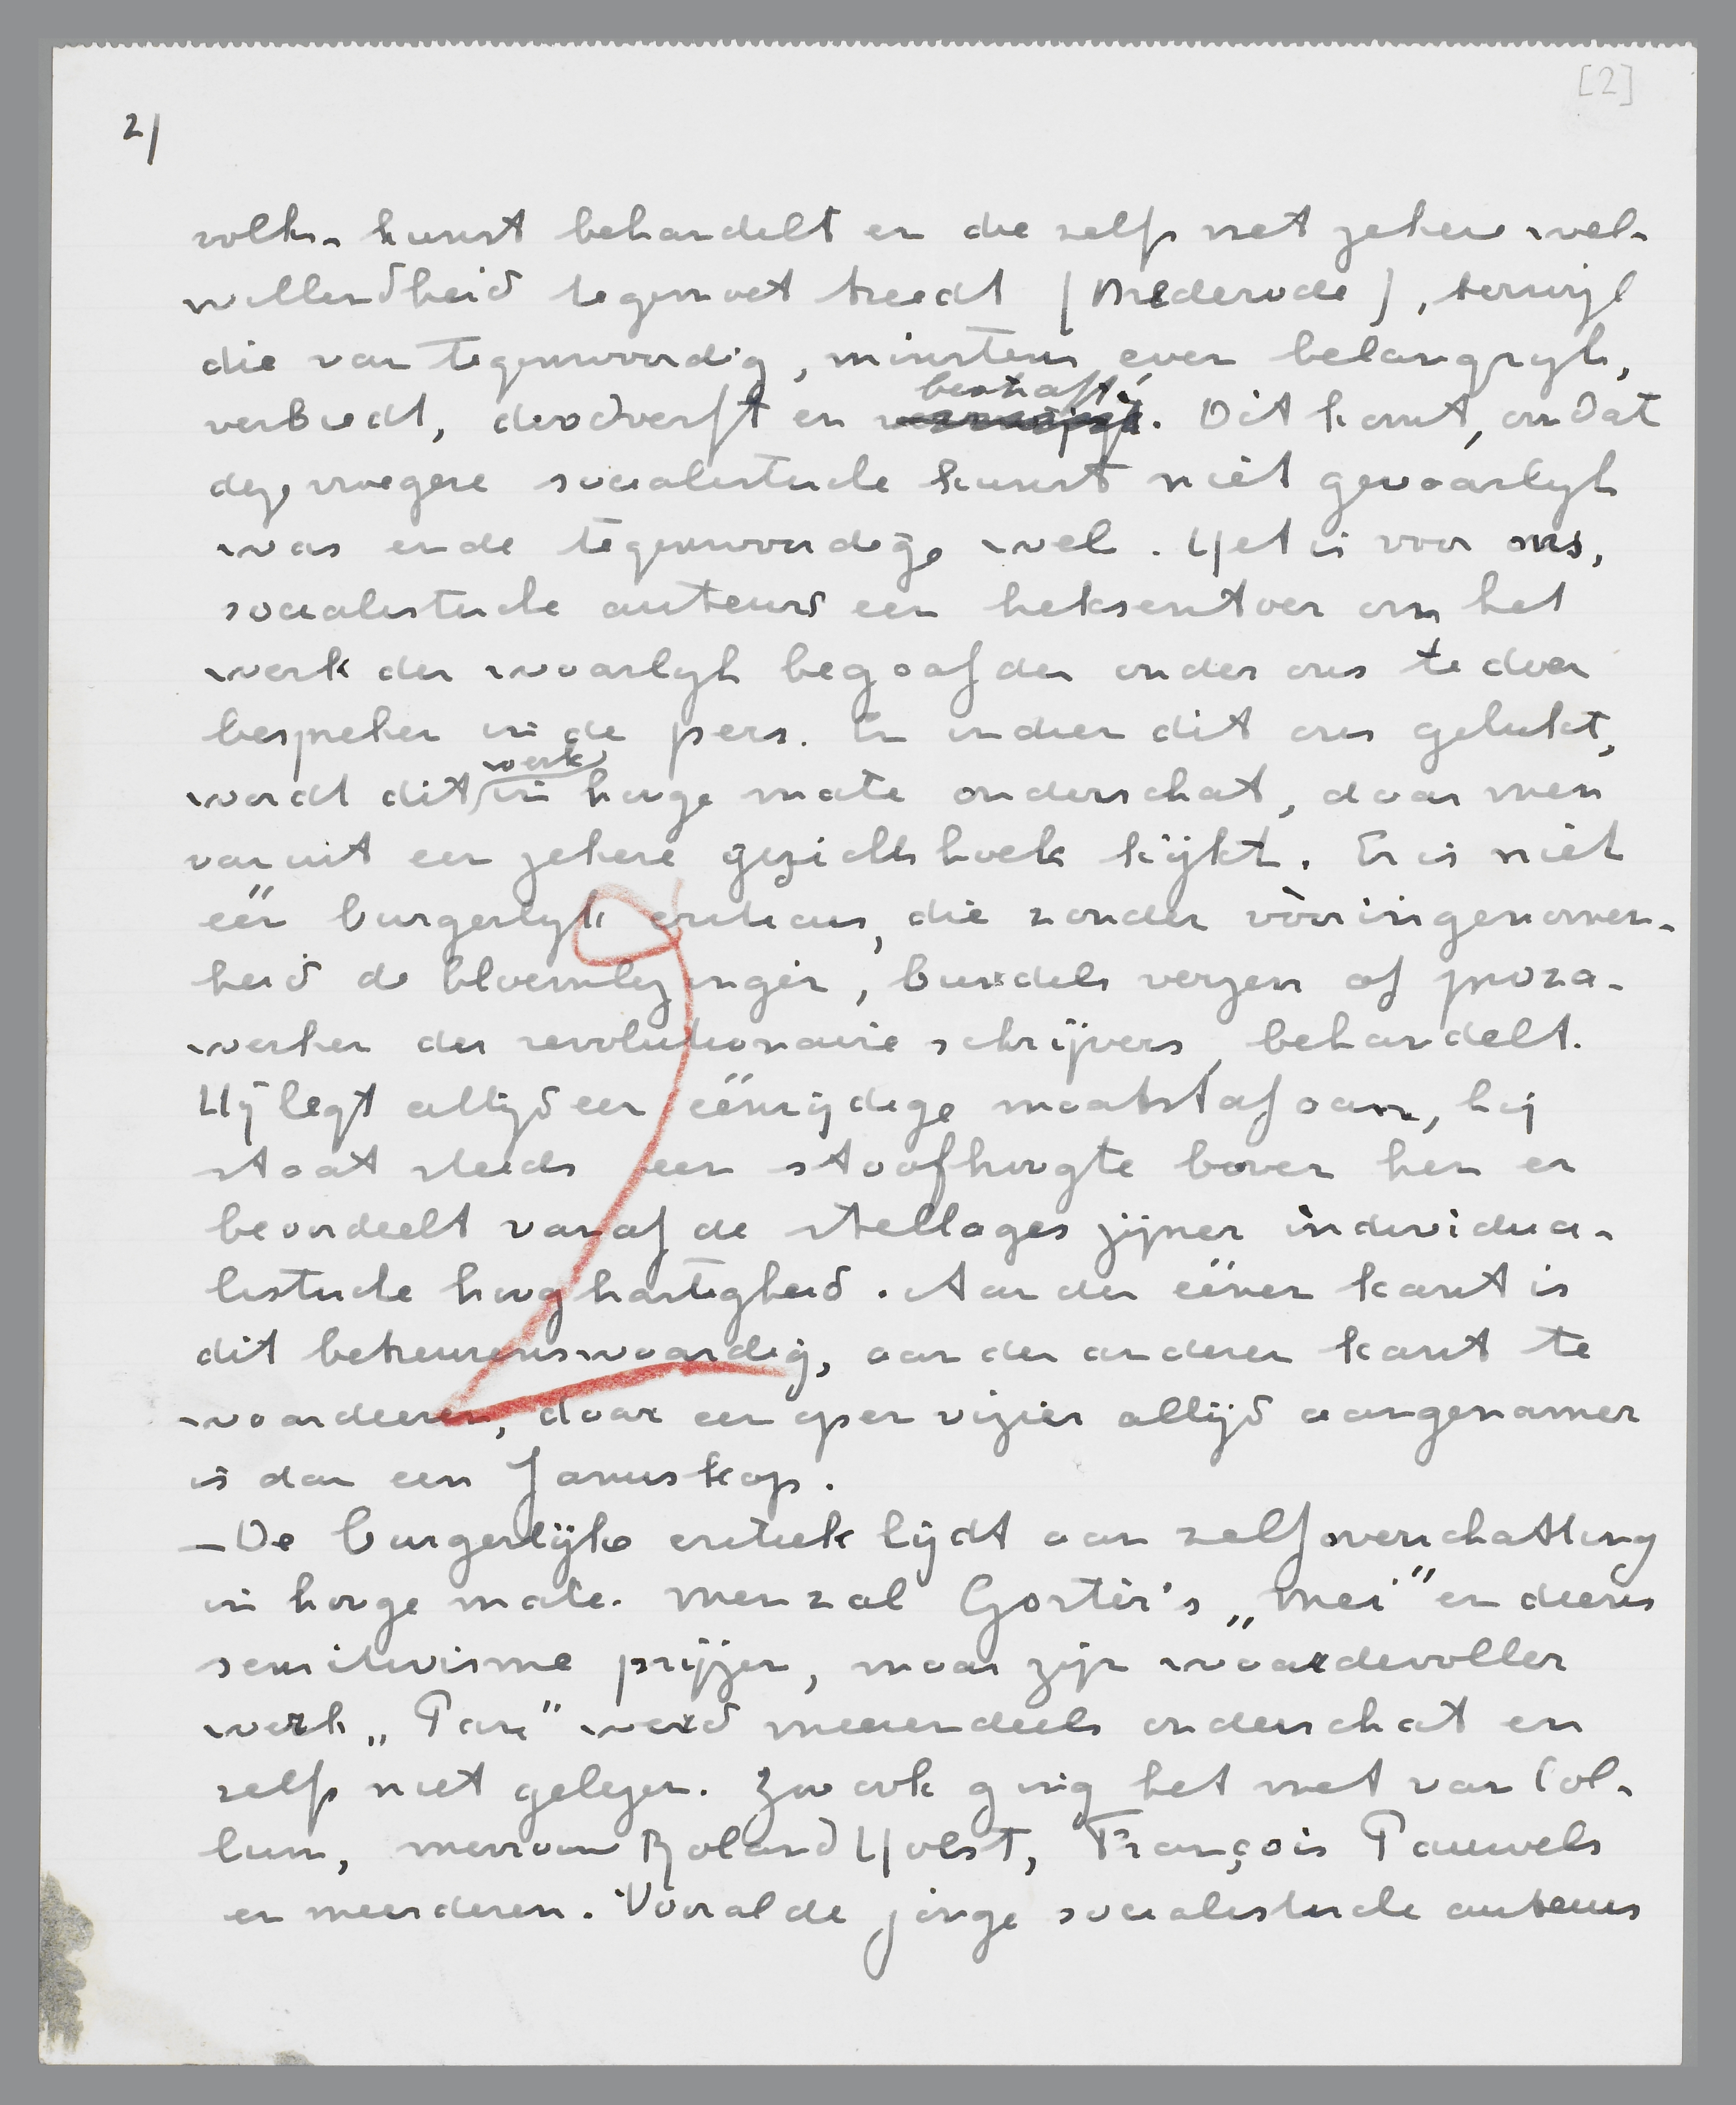 [2]
2/
volks-kunst behandelt en die zelfs met zekere wel-
willendheid tegemoet treedt (Brederode), terwijl
die van tegenwoordig, minstens even belangryk,
verbiedt, doodverft en bestraft. Dit komt, omdat
deze vroegere socialistische kunst niét gevaarlyk
was en de tegenwoordige wel. Het is voor ons,
socialistische auteurs een heksentoer om het
werk der waarlyk begaafden onder ons te doen
bespreken in de pers. En indien dit ons gelukt,
wordt dit werk in hooge mate onderschat, daar men
vanuit een zekere gezichtshoek kijkt. Er is niét
één burgerlyk criticus, die zonder vooringenomen-
heid de bloemlezingen, bundels verzen of proza-
werken der revolutionaire schrijvers, behandelt.
Hij legt altijd een éénzijdige maatstaf aan, hij
staat steeds een stoofhoogte boven hen en
beoordeelt vanaf de stellages zijner individua-
listische hooghartigheid. Aan den éénen kant is
dit betreurenswaardig, aan den anderen kant te
waardeeren, daar een open vizier altijd aangenamer
is dan een Januskop.
– De burgerlijke critiek lijdt aan zelfoverschatting
in hooge mate. Men zal Gorter's „Mei” en diens
sensitivisme prijzen, maar zijn waardevoller
werk „Pan” werd meerendeels onderschat en
zelfs niet gelezen. Zoo ook ging het met van Col-
lum, mevrouw Roland Holst, François Pauwels
en meerderen. Vooral de jonge socialistische auteurs